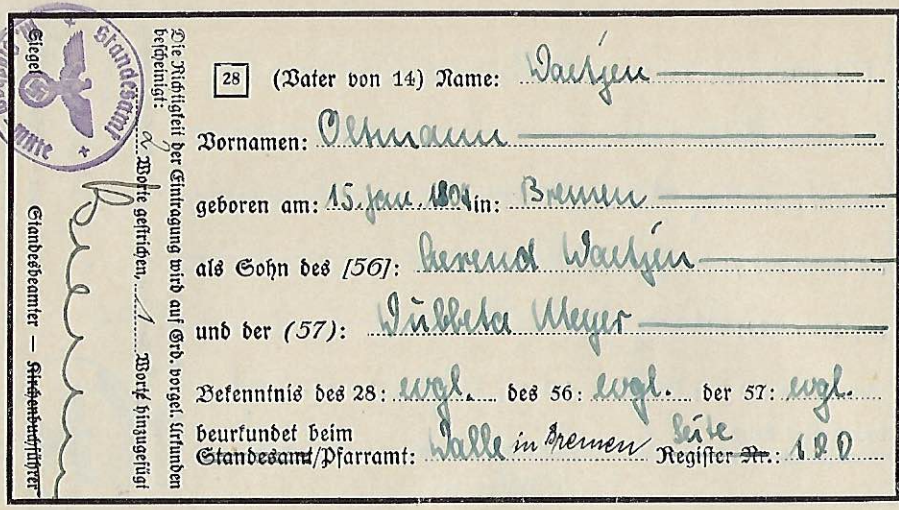 28 (Vater von 14) Name: Waetjen
Vornamen: Oltmann
geboren am: 15. Jan. 1801 in: Bremen
als Sohn des [56]: Berend Waetjen
und der (57): Dübbeta Meyer
Bekenntnis des 28: evgl. des 56: evgl. der 57: evgl.
beurkundet beim
Standesamt/Pfarramt: Walle in Bremen Seite Register Nr.: 180
Die Richtigkeit der Eintragung wird auf Grd. vorgel. Urkunden
bescheinigt:
2 Worte gestrichen, 1 Worte hinzugefügt
Siegel
Standesbeamter — Kirchenbuchführer
Standesamt
Mitte